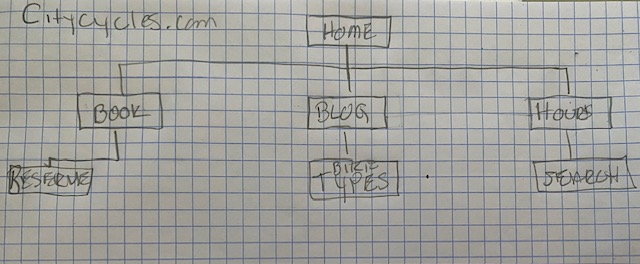 CityCycles.com
HOME
BOOK
BLOG
HOURS
RESERVE
BIKE
TYPES
SEARCH